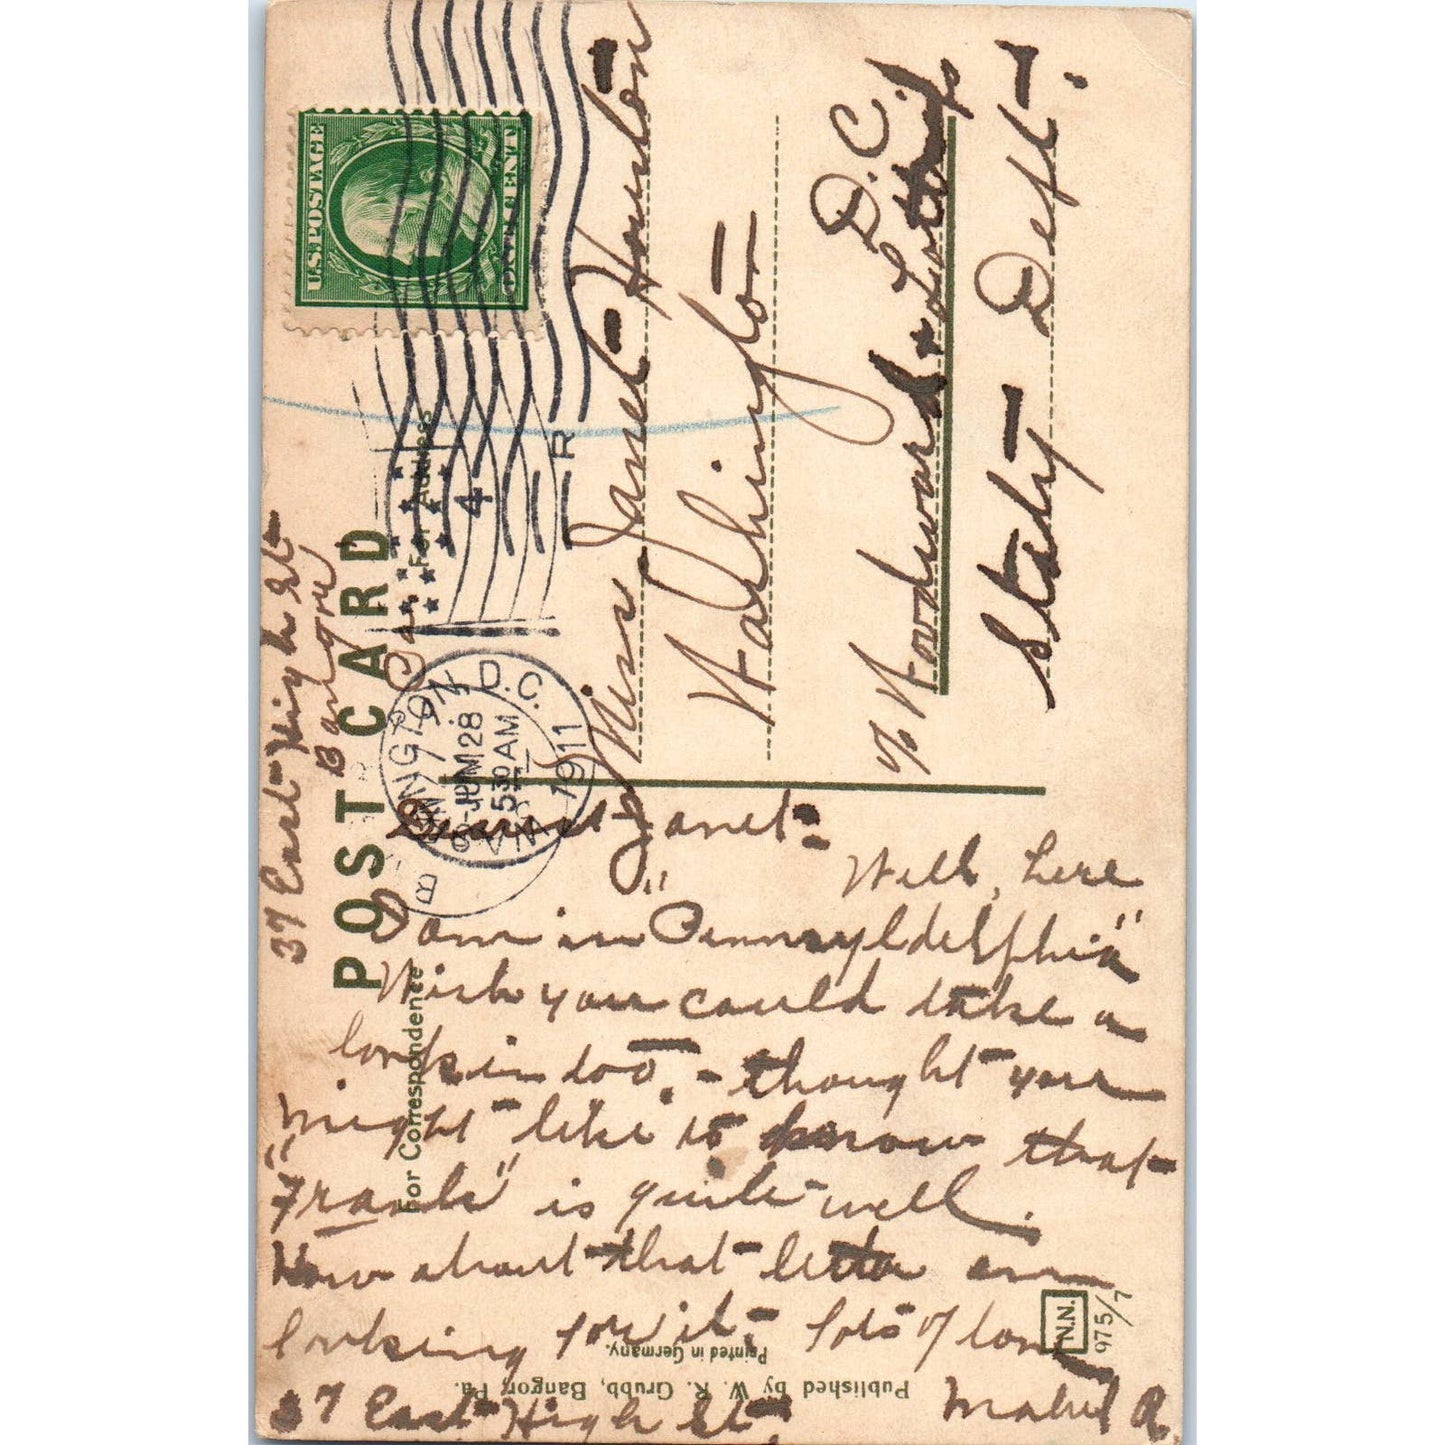 37 East High St
Bangor
Pa.
POST CARD
For Correspondence
For Address
U.S. POSTAGE
ONE CENT
WASHINGTON, D.C.
JUN 28
5 30 AM
1911
4
R
Dearest Janet:
Well, here
I am in "Pennsyldelphia"
Wish you could take a
look in too. - thought you
might like to know that
"Frank" is quite well.
How about that letter am
looking for it. Lots of love
Mabel R.
37 East High St.
Miss Janet Houston
Washington
D.C.
c/o Woodward & Lothrop
Staty Dept.
Published by W. R. Grubb, Bangor, Pa.
Printed in Germany.
N.N.
975/7